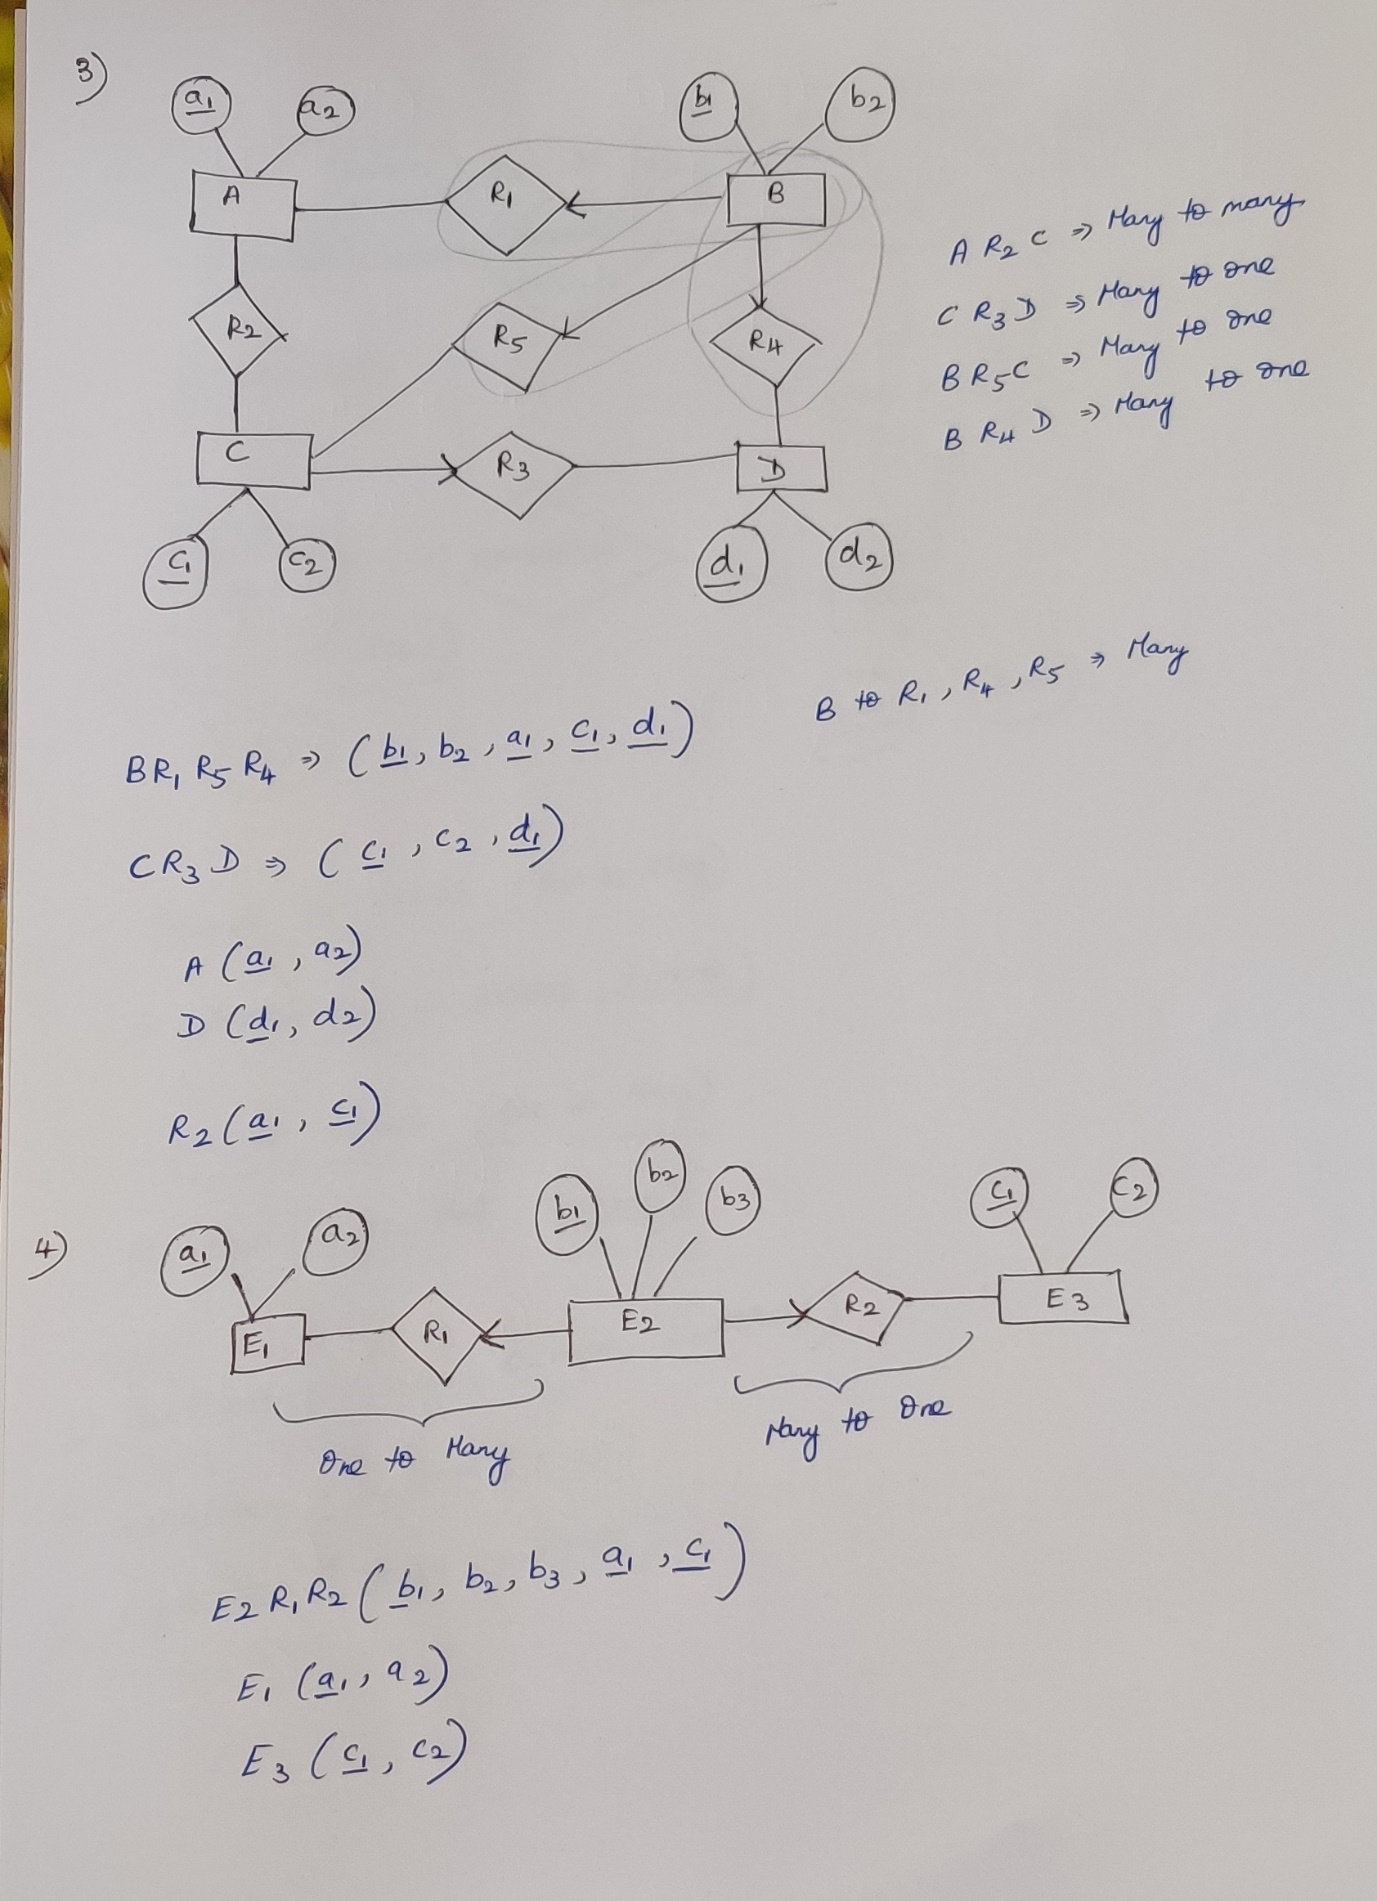 3)
a1 a2 b1 b2
A R1 B
R2 R5 R4
C R3 D
c1 c2 d1 d2
A R2 C ⇒ Many to many
C R3 D ⇒ Many to one
B R5 C ⇒ Many to one
B R4 D ⇒ Many to one
B to R1, R4, R5 ⇒ Many
BR1 R5 R4 ⇒ (b1, b2, a1, c1, d1)
CR3 D ⇒ (c1, c2, d1)
A (a1, a2)
D (d1, d2)
R2 (a1, c1)
4)
a1 a2 b1 b2 b3 c1 c2
E1 R1 E2 R2 E3
One to Many Many to One
E2 R1 R2 (b1, b2, b3, a1, c1)
E1 (a1, a2)
E3 (c1, c2)